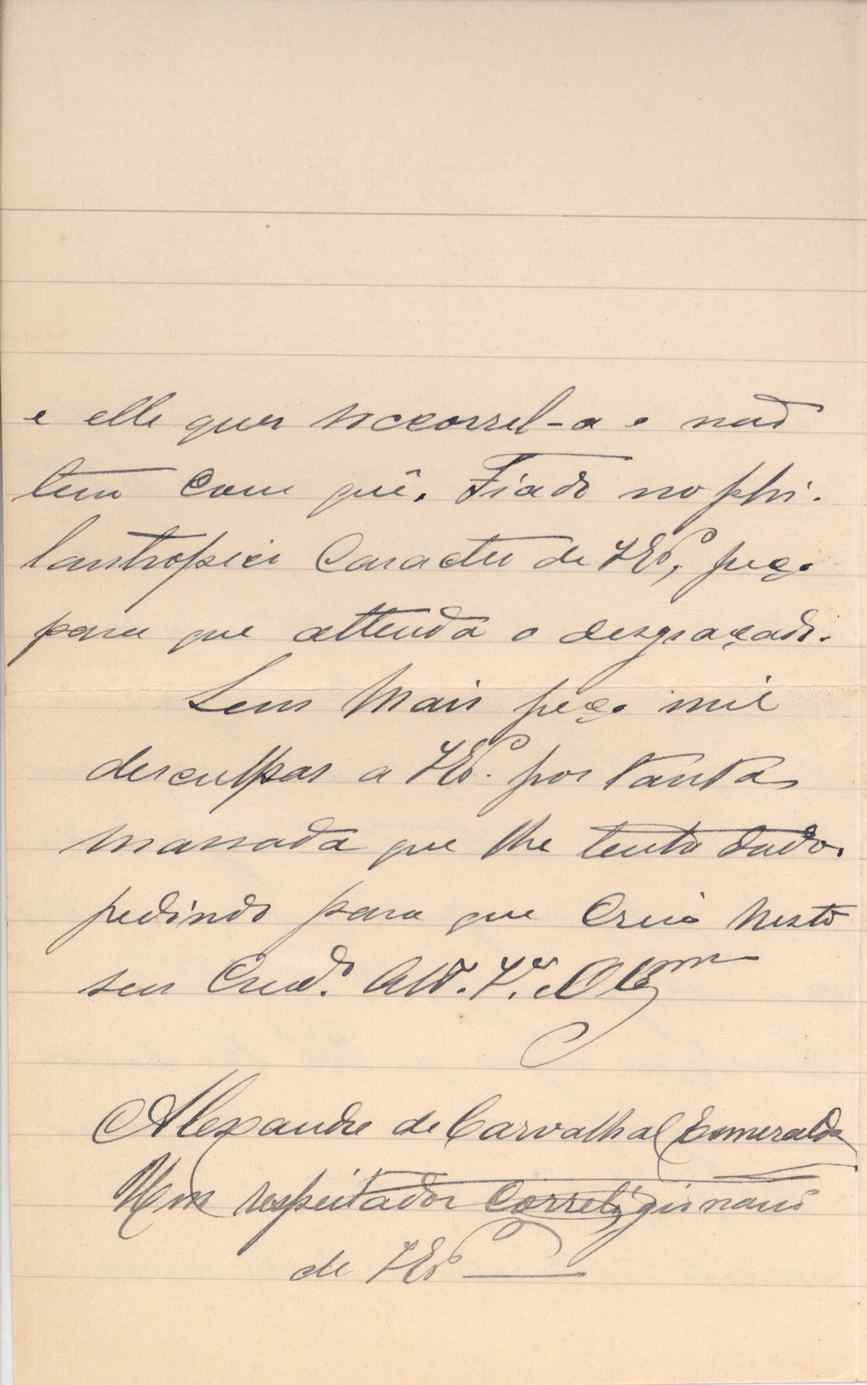 e elle quer soccorrel-a e não
tem com quê. Fiado no phi-
lantropico caracter de V Exª, peço
para que attenda o desgraçado.
Sem mais peço mil
desculpas a V Exª. por tanta
massada que lhe tenho dado,
pedindo para que creia neste
seu Cread.º Att.º V.or e Obgmo
Alexandre de Carvalhal Esmeraldo
Um respeitador correligionario
de V Exª